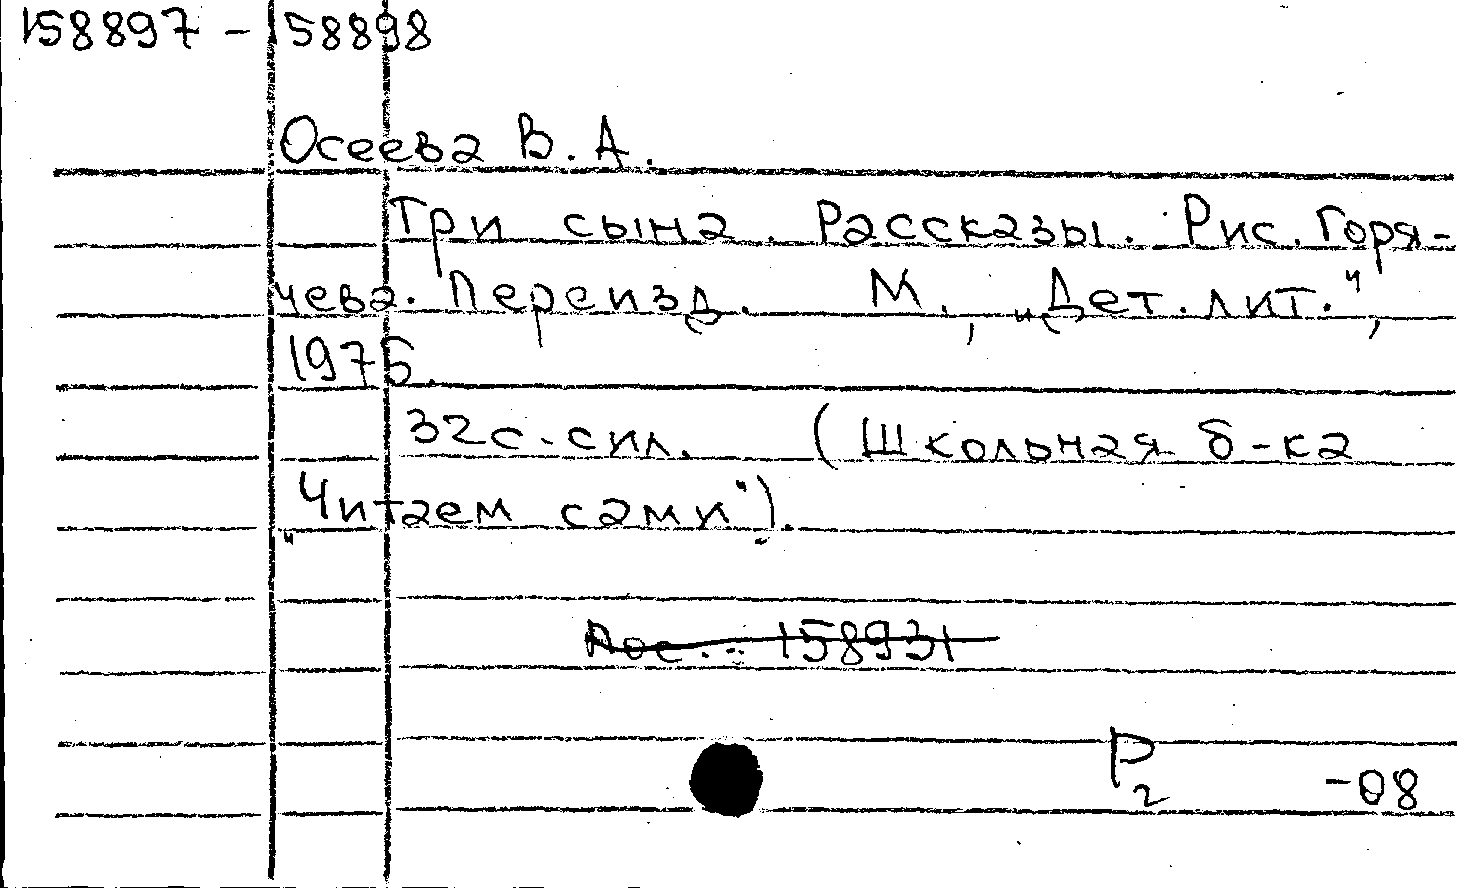 158897 - 158898
Осеева В. А.
Три сына. Рассказы. Рис. Горя-
чева. Переизд. М., „Дет. лит.",
1975.
32с. с ил. (Школьная б-ка
„Читаем сами").
158931
Р2 -08